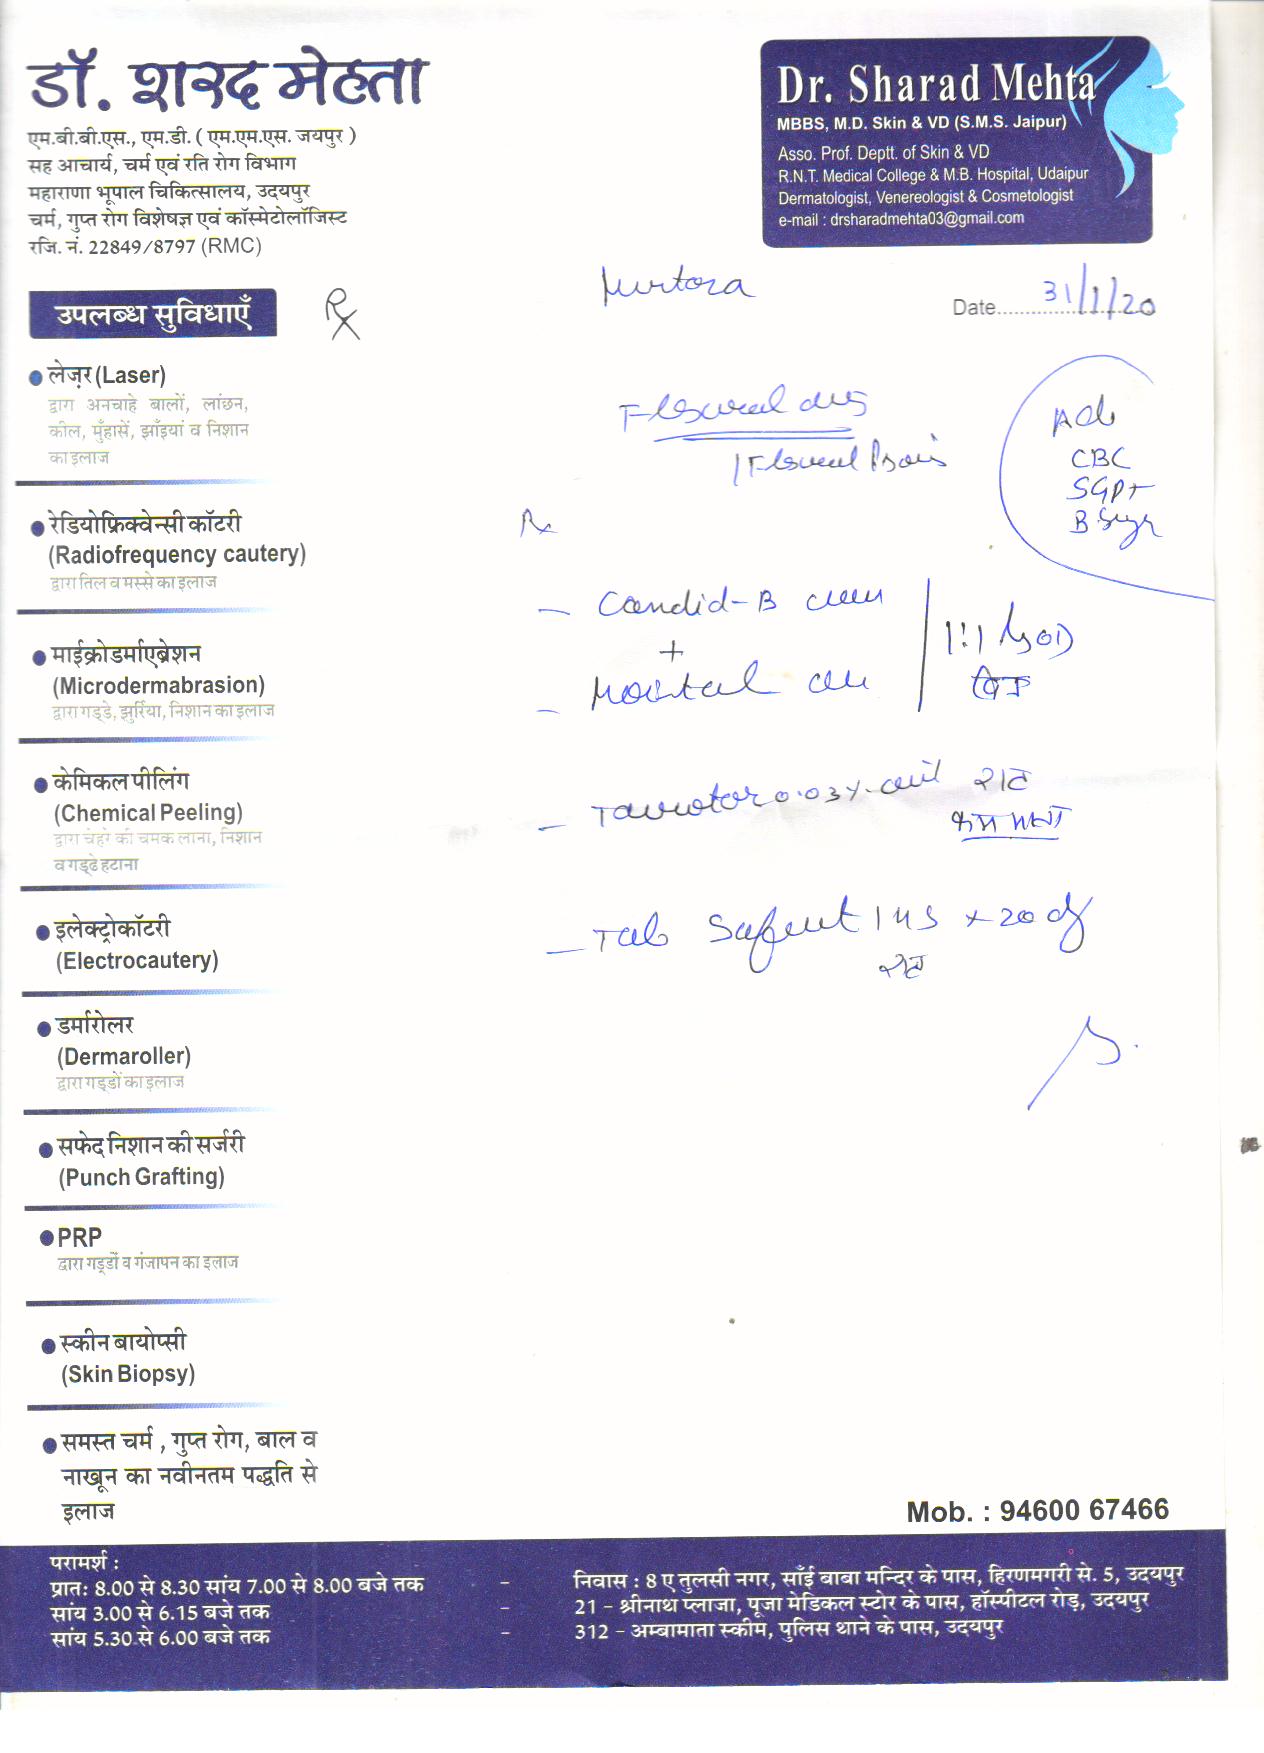 डॉ. शरद मेहता
एम.बी.बी.एस., एम.डी. ( एम.एम.एस. जयपुर )
सह आचार्य, चर्म एवं रति रोग विभाग
महाराणा भूपाल चिकित्सालय, उदयपुर
चर्म, गुप्त रोग विशेषज्ञ एवं कॉस्मेटोलॉजिस्ट
रजि. नं. 22849/8797 (RMC)
Dr. Sharad Mehta
MBBS, M.D. Skin & VD (S.M.S. Jaipur)
Asso. Prof. Deptt. of Skin & VD
R.N.T. Medical College & M.B. Hospital, Udaipur
Dermatologist, Venereologist & Cosmetologist
e-mail : drsharadmehta03@gmail.com
Date 31/1/20
उपलब्ध सुविधाएँ
Rx
लेज़र (Laser)
द्वारा अनचाहे बालों, लांछन,
कील, मुँहासें, झाँइयां व निशान
का इलाज
रेडियोफ्रिक्वेन्सी कॉटरी
(Radiofrequency cautery)
द्वारा तिल व मस्से का इलाज
माईक्रोडर्माएब्रेशन
(Microdermabrasion)
द्वारा गड्डे, झुर्रिया, निशान का इलाज
केमिकल पीलिंग
(Chemical Peeling)
द्वारा चेहरे की चमक लाना, निशान
व गड्ढे हटाना
इलेक्ट्रोकॉटरी
(Electrocautery)
डर्मारोलर
(Dermaroller)
द्वारा गड्डों का इलाज
सफेद निशान की सर्जरी
(Punch Grafting)
PRP
द्वारा गड्डों व गंजापन का इलाज
स्कीन बायोप्सी
(Skin Biopsy)
समस्त चर्म , गुप्त रोग, बाल व
नाखून का नवीनतम पद्धति से
इलाज
Flexural
Flexural
Adv
CBC
SGPT
B Sugar
Rx
- Candid-B cream
+
1:1
0.03% रात
- Tab 1 HS x 20 d
रात
Mob. : 94600 67466
परामर्श :
प्रातः 8.00 से 8.30 सांय 7.00 से 8.00 बजे तक - निवास : 8 ए तुलसी नगर, साँई बाबा मन्दिर के पास, हिरणमगरी से. 5, उदयपुर
सांय 3.00 से 6.15 बजे तक - 21 - श्रीनाथ प्लाजा, पूजा मेडिकल स्टोर के पास, हॉस्पीटल रोड़, उदयपुर
सांय 5.30 से 6.00 बजे तक - 312 - अम्बामाता स्कीम, पुलिस थाने के पास, उदयपुर